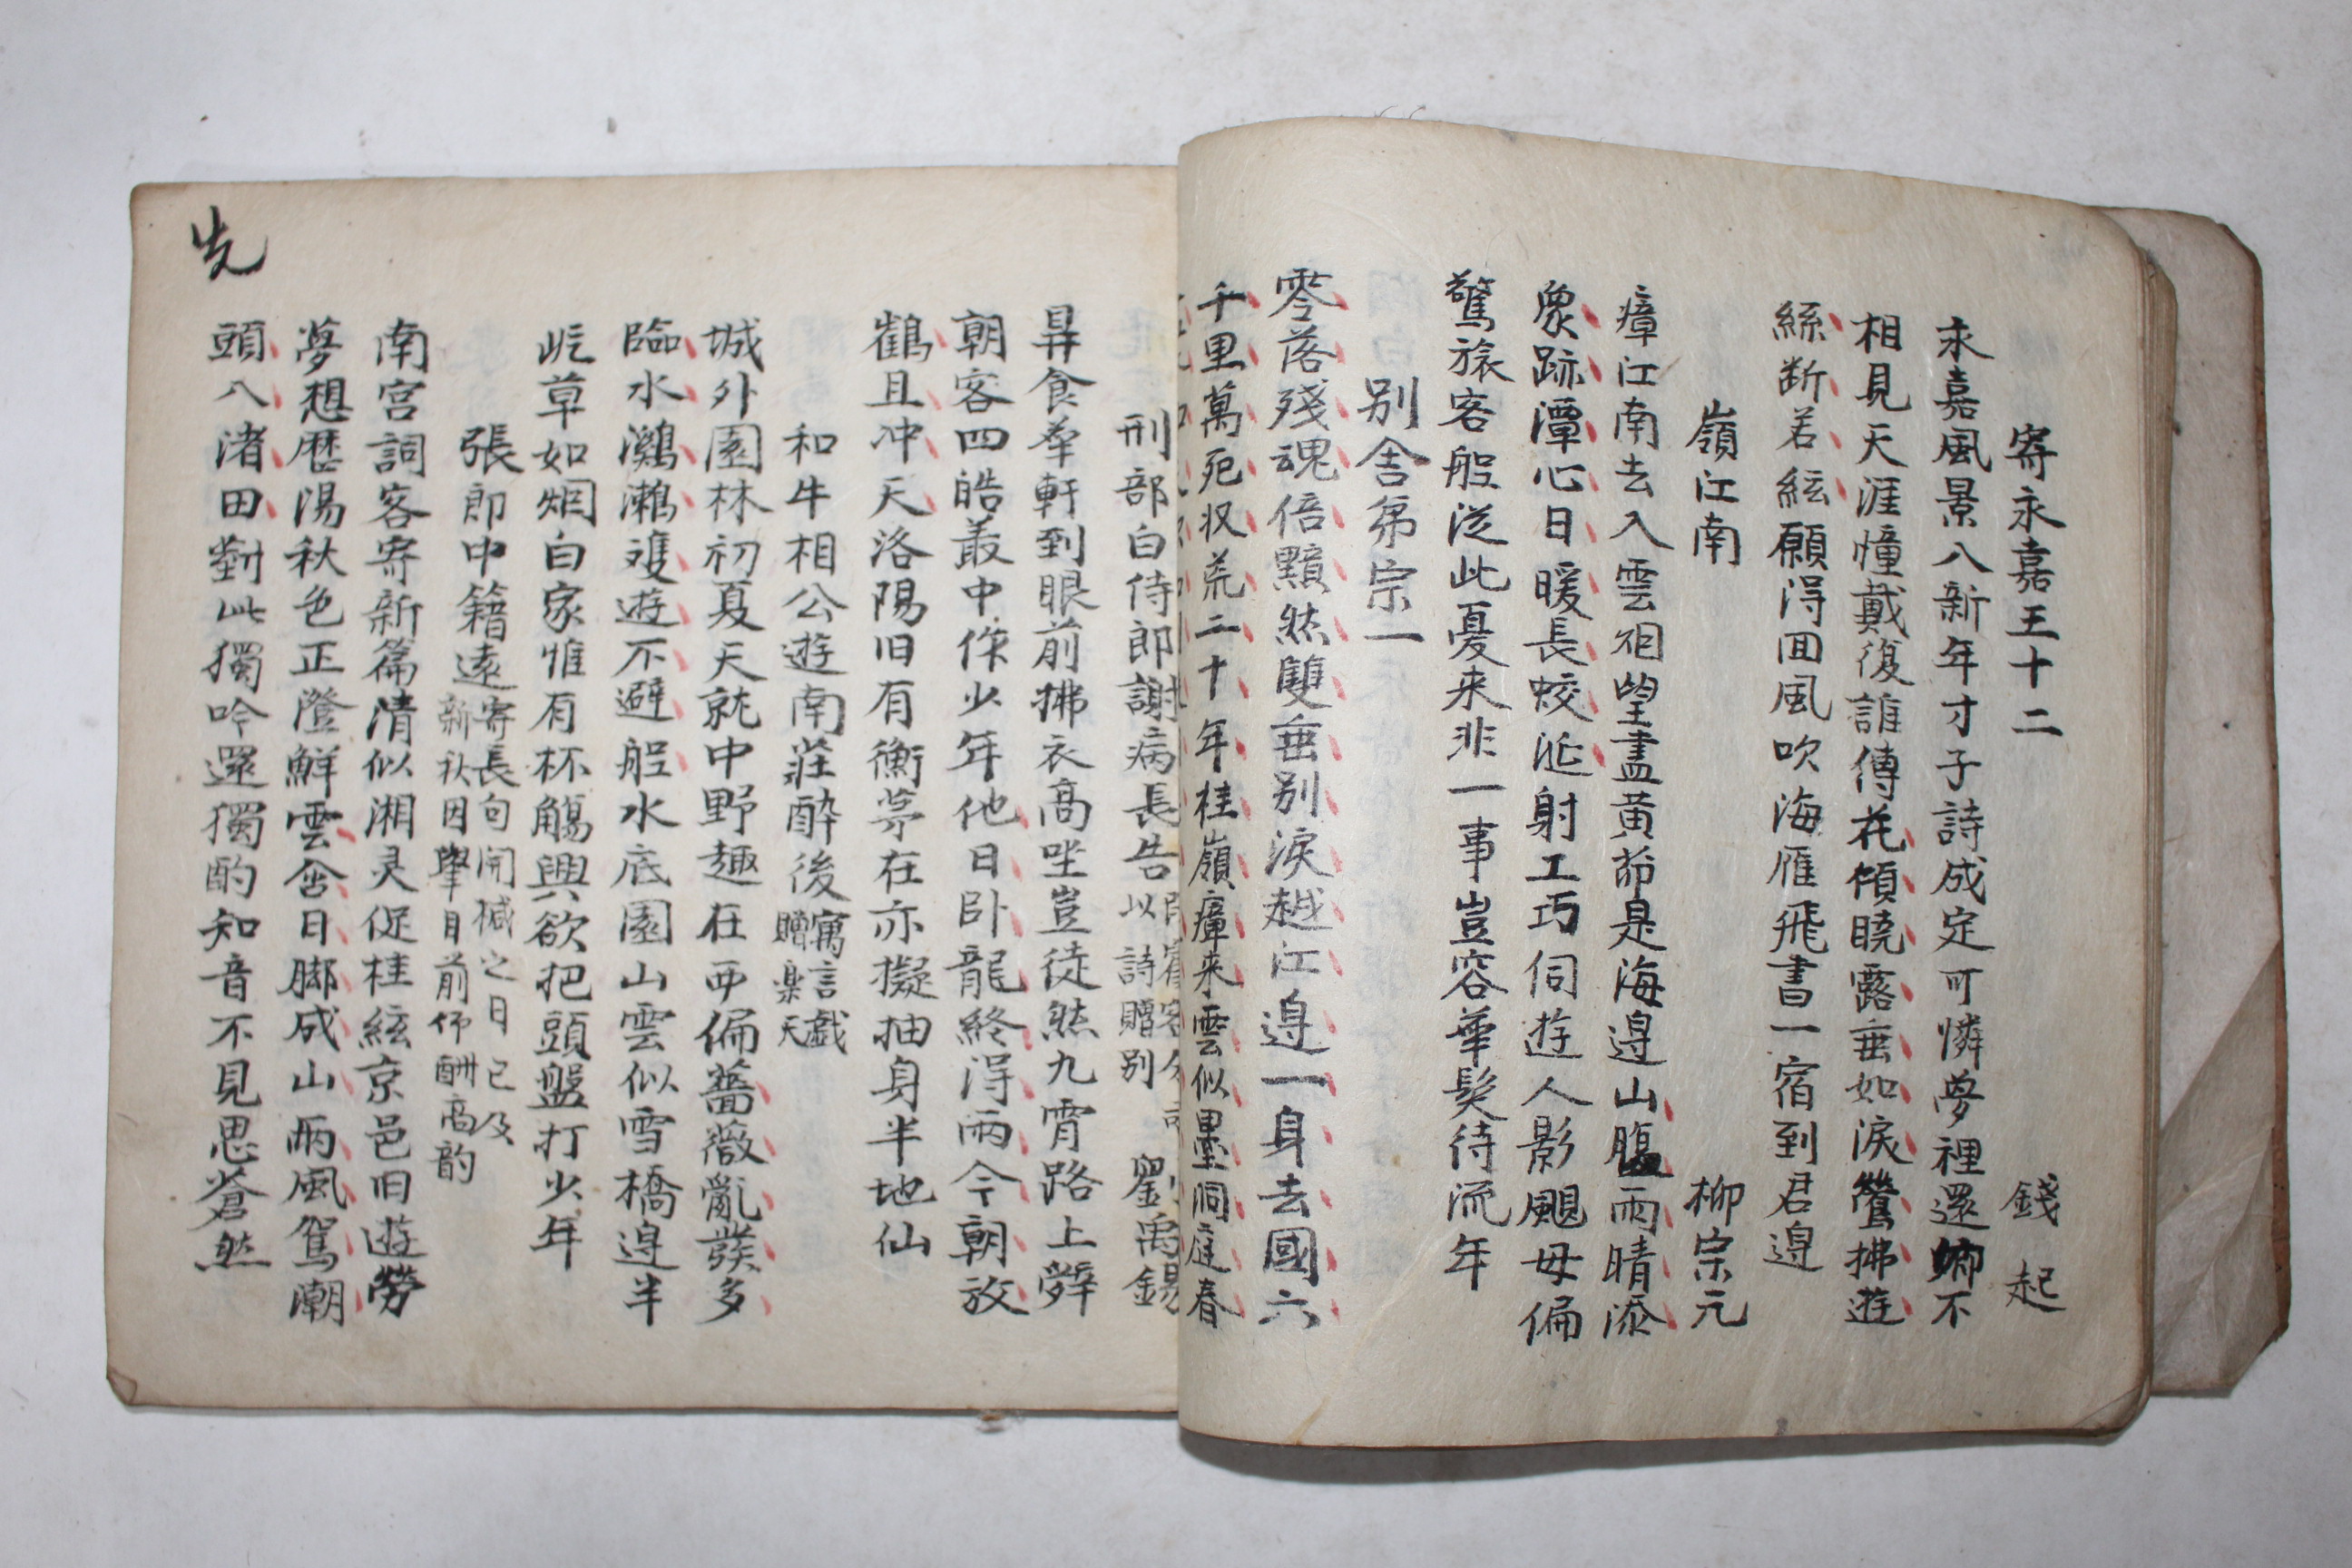 寄永嘉王十二 錢起
永嘉風景入新年才子詩成定可憐夢裡還鄉不
相見天涯憧戴復誰傳花傾曉露垂如淚鶯拂遊
絲断若絃願得回風吹海雁飛書一宿到君邊
嶺江南 柳宗元
瘴江南去入雲烟望盡黃茆是海邊山腹雨晴添
象跡潭心日暖長蛟涎射工巧伺遊人影颶母偏
驚旅客船從此憂来非一事豈容華髮待流年
别舍弟宗一
零落殘魂倍黯然雙垂别淚越江邊一身去國六
千里萬死投荒二十年桂嶺瘴来雲似墨洞庭春
刑部白侍郎謝病長告 以詩贈别 劉禹錫
昇食華軒到眼前拂衣高坐豈徒然九霄路上辭
朝客四皓叢中作少年他日卧龍終得雨今朝放
鶴且冲天洛陽旧有衡茅在亦擬抽身半地仙
和牛相公遊南莊醉後寓言戯
贈楽天
城外園林初夏天就中野趣在西偏薔薇亂發多
臨水鸂鶒雙遊不避船水底園山雲似雪橋邊半
屹草如烟白家惟有杯觴興欲把頭盤打少年
張郎中籍遠寄長句開椷之日已及
新秋因擧目前仰酬高韵
南宮詞客寄新篇清似湘灵促桂絃京邑旧遊勞
夢想歴湯秋色正澄鮮雲含日脚成山雨風駕潮
頭入渚田對此獨吟還獨酌知音不見思蒼然
先